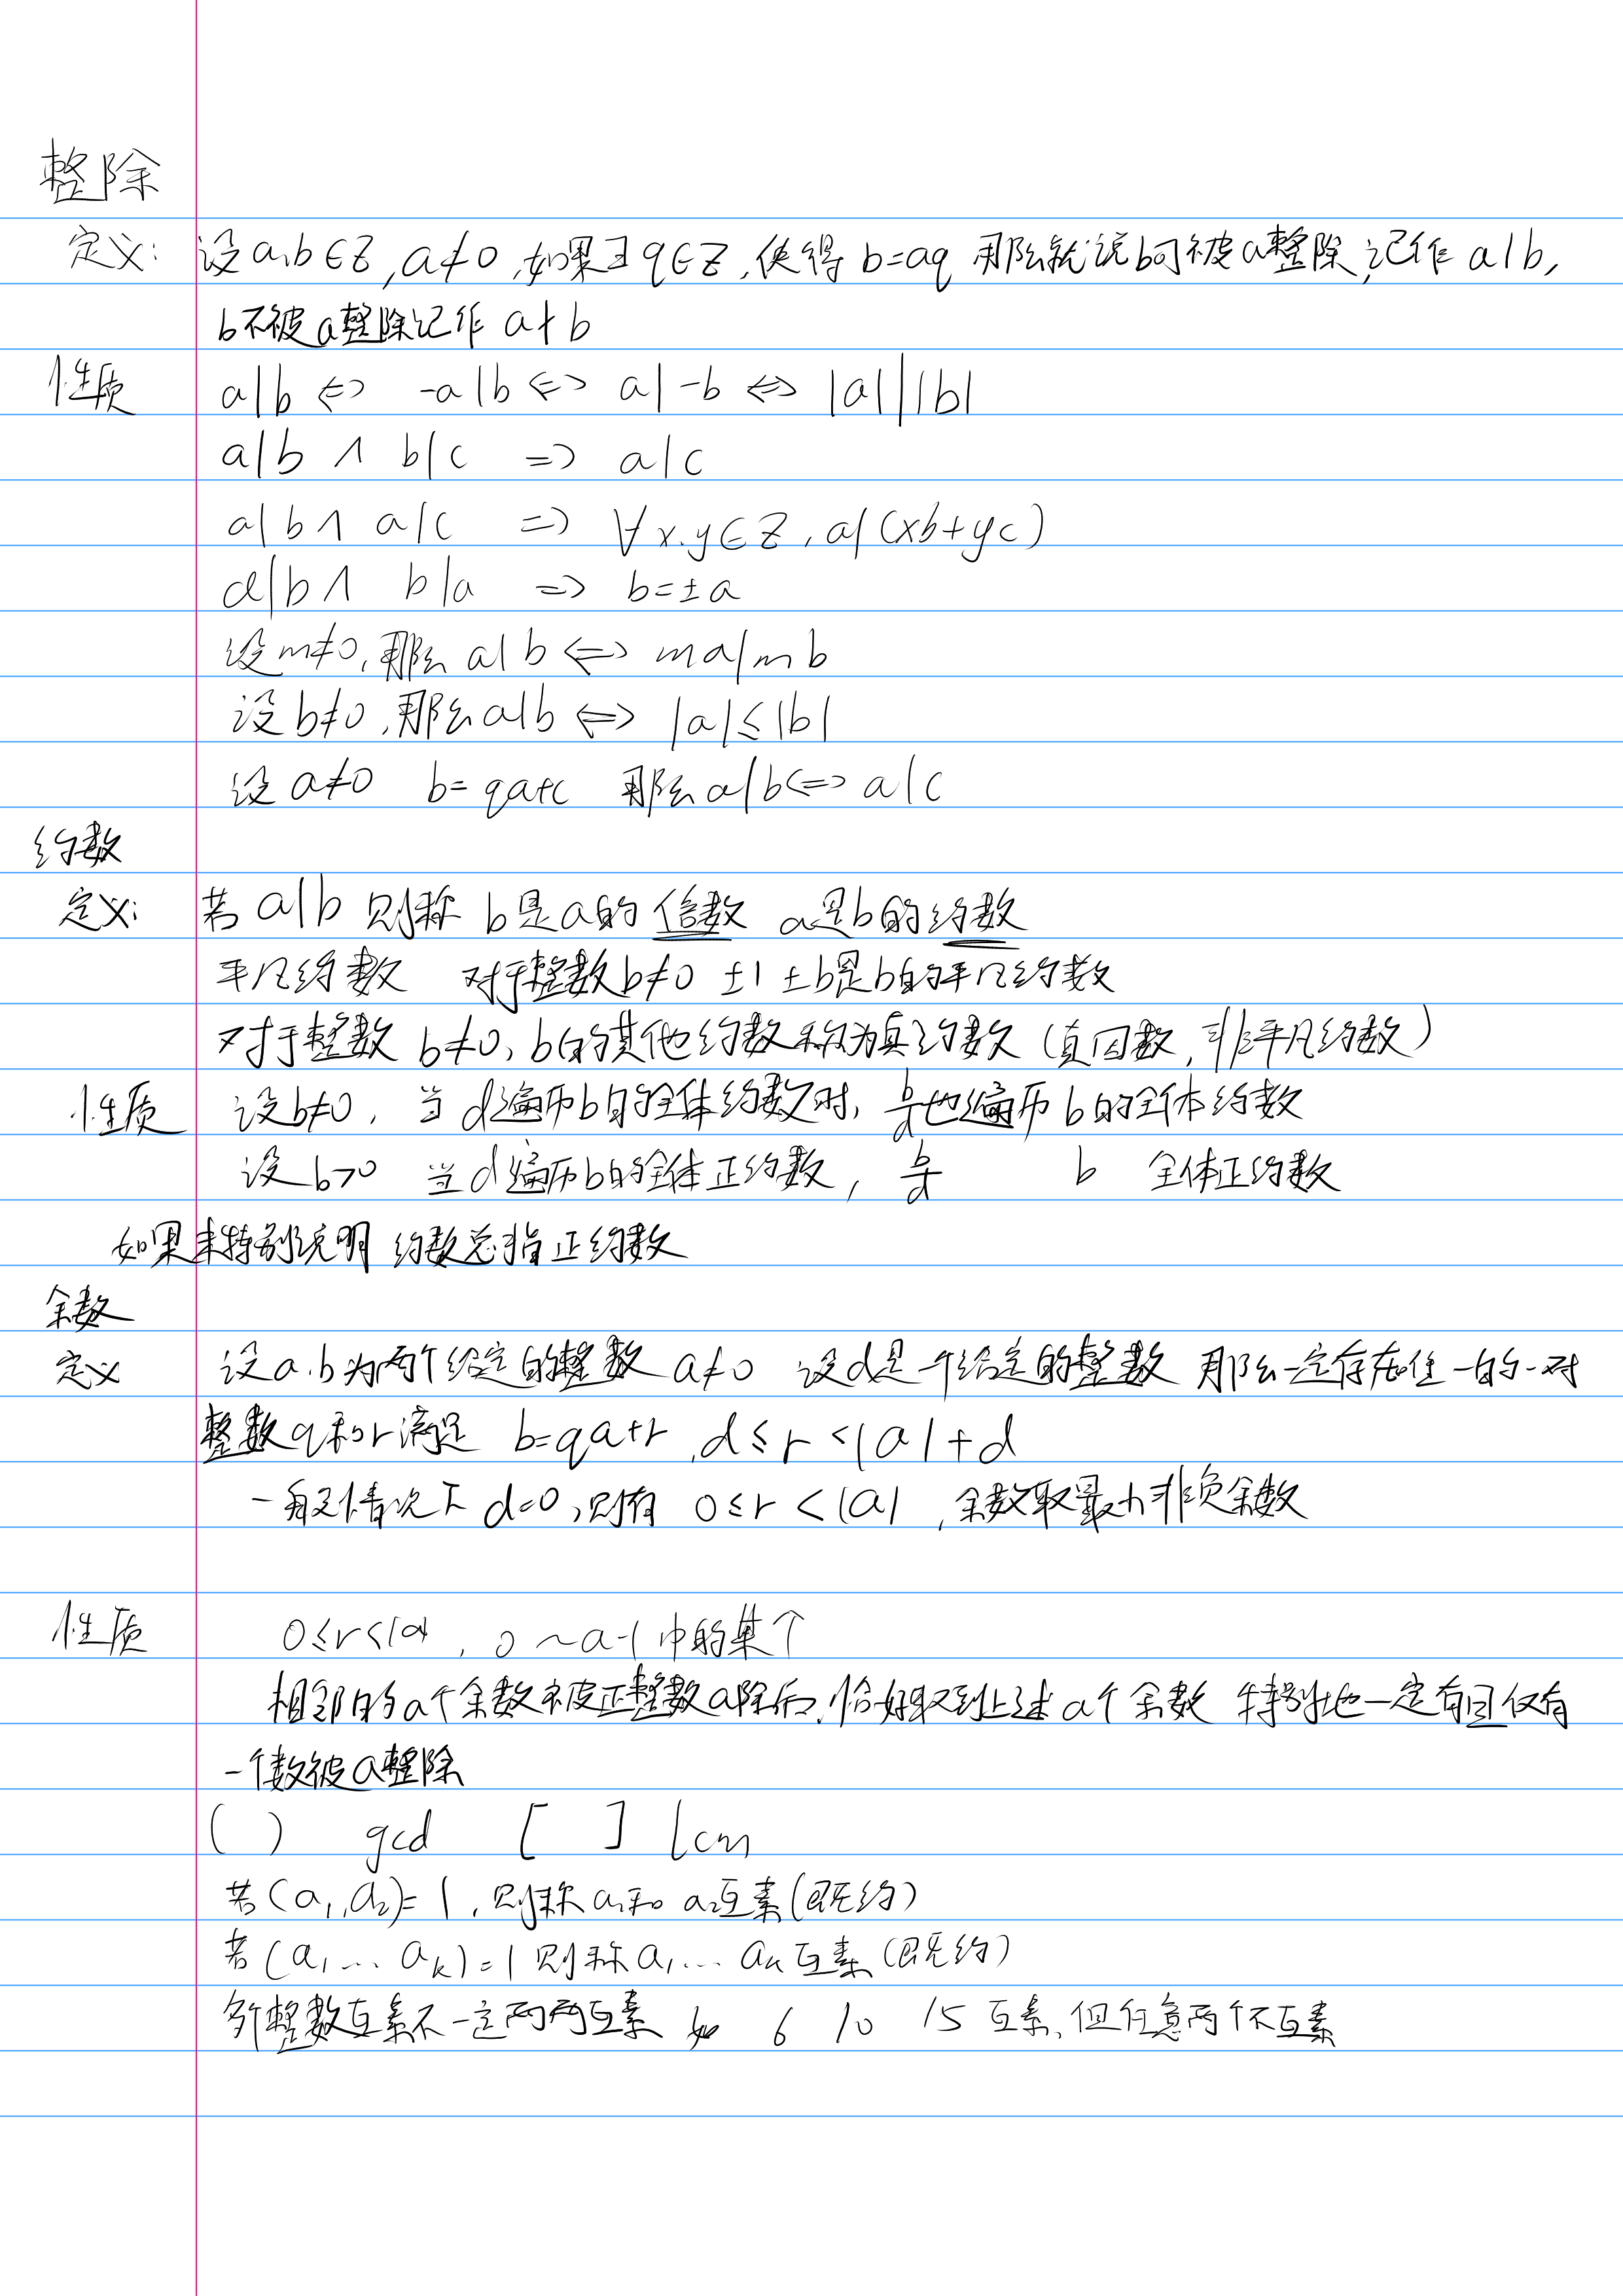 整除
定义: 设a,b∈Z,a≠0,如果∃q∈Z,使得b=aq 那么就说b可被a整除,记作a|b,
b不被a整除记作a∤b
性质 a|b ⇔ -a|b ⇔ a|-b ⇔ |a|||b|
a|b ∧ b|c ⇒ a|c
a|b ∧ a|c ⇒ ∀x.y∈Z,a|(xb+yc)
a|b ∧ b|a ⇒ b=±a
设m≠0,那么a|b ⇔ ma|mb
设b≠0,那么a|b ⇔ |a|≤|b|
设a≠0 b=qa+c 那么a|b ⇔ a|c
约数
定义: 若a|b 则称 b是a的倍数 a是b的约数
平凡约数 对于整数b≠0 ±1 ±b是b的平凡约数
对于整数 b≠0,b的其他约数称为真约数(真因数,非平凡约数)
性质 设b≠0, 当d遍历b的全体约数时, b/d也遍历b的全体约数
设b>0 当d遍历b的全体正约数, b/d b 全体正约数
如果未特别说明 约数总指正约数
余数
定义 设a.b为两个给定的整数 a≠0 设d是一个给定的整数 那么一定存在唯一的一对
整数q和r满足 b=qa+r,d≤r<|a|+d
一般情况下d=0,则有 0≤r<|a|,余数取最小非负余数
性质 0≤r<|a|, 0~a-1中的某个
相邻的a个余数被正整数a除后,恰好取到上述a个余数 特别地一定有且仅有
一个数被a整除
( ) gcd [ ] lcm
若(a₁,a₂)=1,则称a₁和a₂互素(既约)
若(a₁...aₖ)=1则称a₁...aₖ互素(既约)
多个整数互素不一定两两互素 如 6 10 15 互素,但任意两个不互素